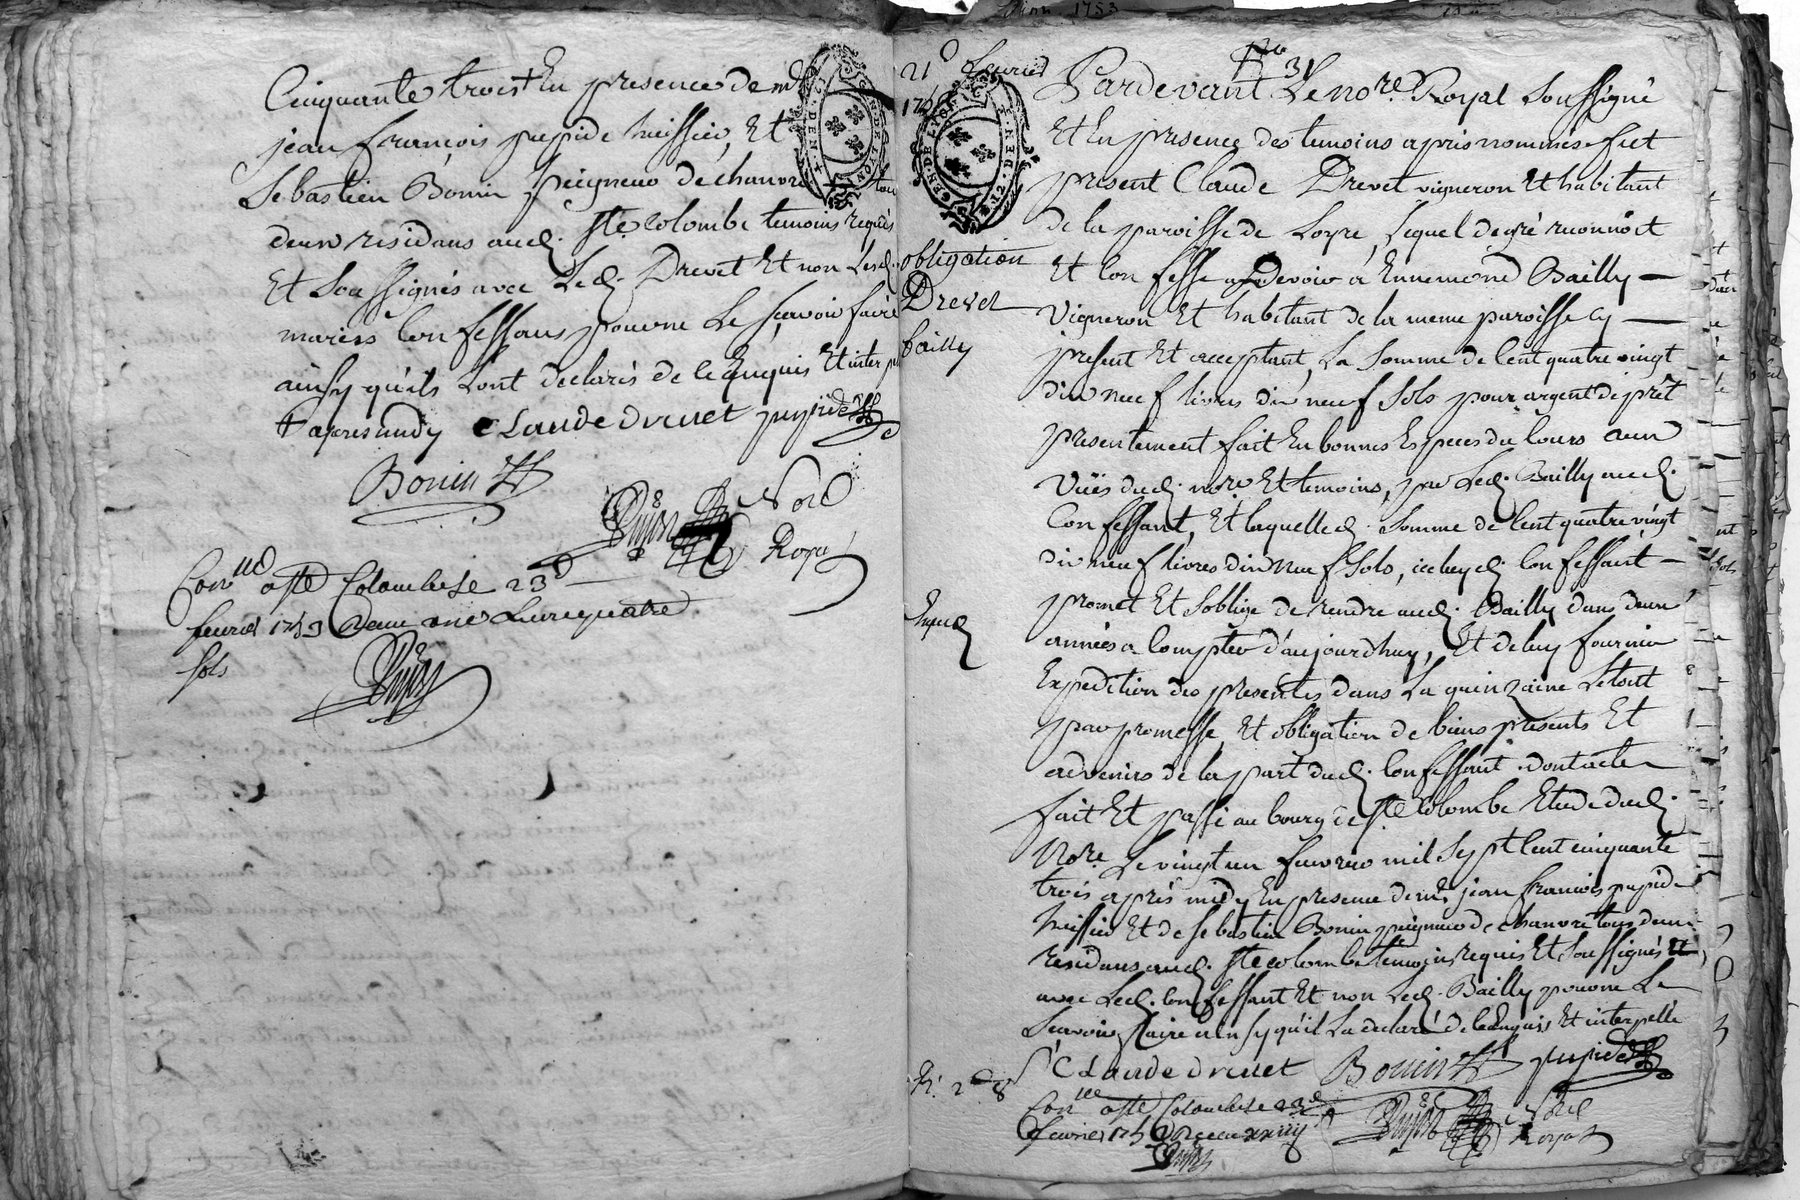 Cinquante trois + En presence de mr
jean françois pupide huissier, Et
Sebastien Bonin peigneur de chanvre tous
deux residans aud. Ste Colombe temoins requis
Et Soussignés avec Led. Drevet Et non Lesd.
mariés Confessans pour ne Le sçavoir faire
ainsy qu'ils Lont declarés de ce Enquis Et inter
+ apres midy Claude drevet pupide
Bonin
Dujon Nore
Royal
Conllé a Ste Colombe Le 23d
fevrier 1753 Reçu une Livre quatre
sols
Dujon
21d fevrier
GEN. DE LYON
2. DEN.
obligation
Drevet
bailly
Expéd
No 31
Pardevant Le nore Royal Soussigné
Et En presence des temoins apris nommés fut
present Claude Drevet vigneron Et habitant
de la paroisse de Loyre, Lequel de gré reconnoit
Et Confesse devoir à Ennemond Bailly
vigneron Et habitant de la meme paroisse cy
present Et acceptant, La Somme de Cent quatre vingt
dix neuf livres dix neuf Sols pour argent de prêt
presentement fait En bonnes Especes du Cours aux
vuës dud. nore Et temoins, par Led. Bailly aud.
Confessant, Et laquelle d. Somme de Cent quatre vingt
dix neuf livres dix neuf Sols, iceluy d. Confessant
promet Et Soblige de rendre aud. Bailly dans deux
années a Compter d'aujourdhuy, Et de luy fournir
Expedition des presentes dans La quinzaine Le tout
par promesse Et obligation de biens presents Et
advenirs de la part dud. Confessant. dont acte
fait Et passé au bourg de Ste Colombe Etude dud.
Nore Le vingt un fevrier mil Sept Cent cinquante
trois après midy En presence de mr jean françois pupide
huissier Et de Sebastien Bonin peigneur de chanvre tous deux
residans aud. Ste Colombe temoins requis Et Soussignés
avec Led. Confessant Et non Led. Bailly pour ne Le
Sçavoir faire ainsy qu'il La declaré de ce Enquis Et interpellé
Claude drevet Bonin pupide
Conllé a Ste Colombe Le 23d Dujon Nore
fevrier 175 Reçu xxiiij Royal
Dujon